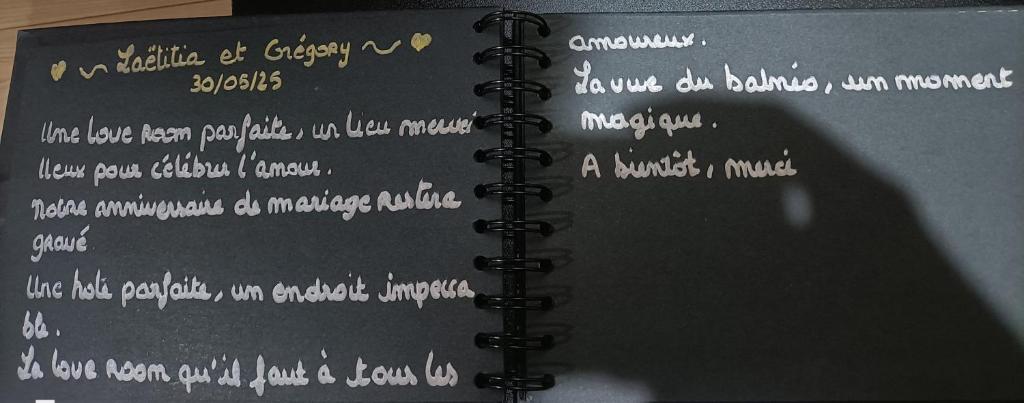 Laëtitia et Grégory
30/05/25
Une love Room parfaite, un lieu mervei
lleux pour célébrer l'amour.
Notre anniversaire de mariage Restera
gravé
Une hote parfaite, un endroit impecca
ble.
La love Room qu'il faut à tous les
amoureux.
La vue du balnéo, un moment
magique.
A bientôt, merci